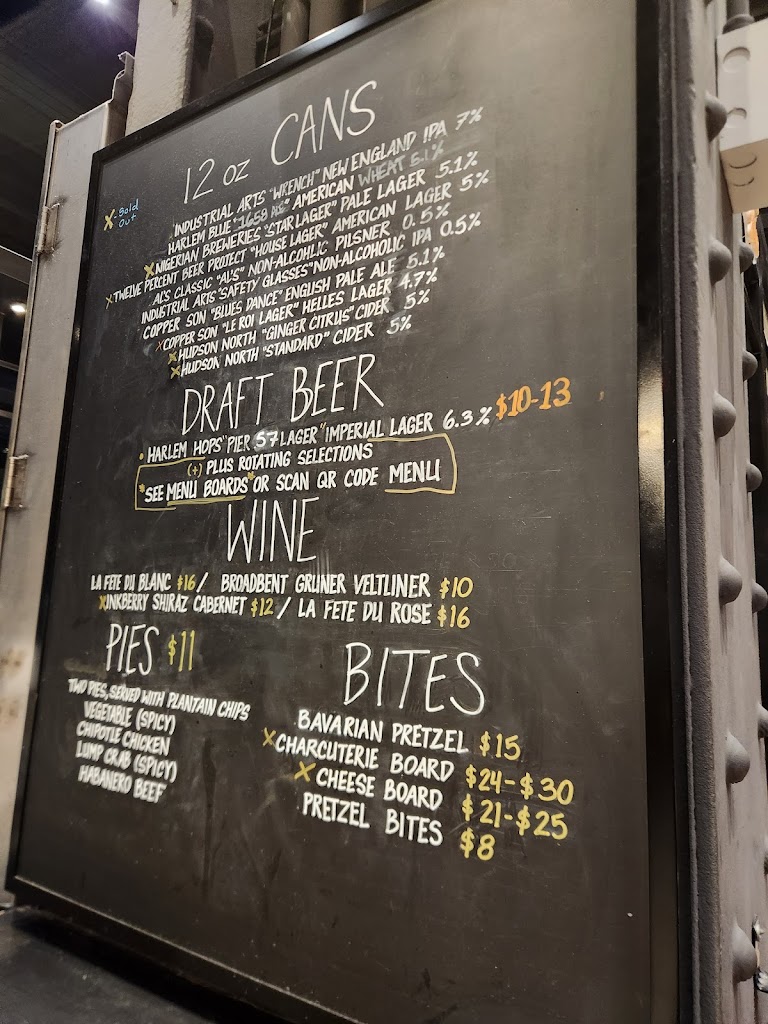 12 oz CANS
X-Sold
Out
INDUSTRIAL ARTS "WRENCH" NEW ENGLAND IPA 7%
HARLEM BLUE "1658 ALE" AMERICAN WHEAT 5.1%
X NIGERIAN BREWERIES "STAR LAGER" PALE LAGER 5.1%
X TWELVE PERCENT BEER PROJECT "HOUSE LAGER" AMERICAN LAGER 5%
AL'S CLASSIC "AL'S" NON-ALCOHLIC PILSNER 0.5%
INDUSTRIAL ARTS "SAFETY GLASSES" NON-ALCOHOLIC IPA 0.5%
COPPER SON "BLUES DANCE" ENGLISH PALE ALE 5.1%
X COPPER SON "LE ROI LAGER" HELLES LAGER 4.7%
X HUDSON NORTH "GINGER CITRUS" CIDER 5%
X HUDSON NORTH "STANDARD" CIDER 5%
DRAFT BEER
• HARLEM HOPS "PIER 57 LAGER" IMPERIAL LAGER 6.3% $10-13
(+) PLUS ROTATING SELECTIONS
*SEE MENU BOARDS* OR SCAN QR CODE MENU
WINE
LA FETE DU BLANC $16 / BROADBENT GRUNER VELTLINER $10
X INKBERRY SHIRAZ CABERNET $12 / LA FETE DU ROSE $16
PIES $11
TWO PIES, SERVED WITH PLANTAIN CHIPS
VEGETABLE (SPICY)
CHIPOTLE CHICKEN
LUMP CRAB (SPICY)
HABANERO BEEF
BITES
BAVARIAN PRETZEL $15
X CHARCUTERIE BOARD $24-$30
X CHEESE BOARD $21-$25
PRETZEL BITES $8